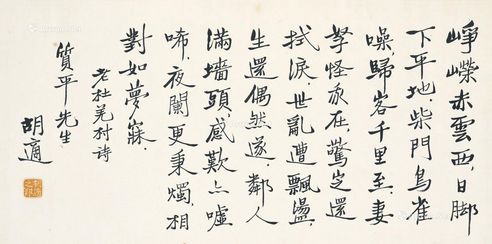 崢嶸赤雲西，日脚
下平地。柴門鳥雀
噪，歸客千里至。妻
孥怪我在，驚定還
拭淚。世亂遭飄盪，
生還偶然遂。鄰人
滿墻頭，感歎亦噓
唏。夜闌更秉燭，相
對如夢寐。
老杜羌村诗
質平先生
胡適